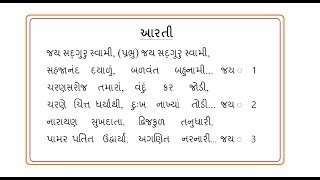 આરતી
જય સદ્‌ગુરુ સ્વામી, (પ્રભુ) જય સદ્‌ગુરુ સ્વામી,
સહજાનંદ દયાળું, બળવંત બહુનામી... જય ૦ 1
ચરણસરોજ તમારાં, વંદું કર જોડી,
ચરણે ચિત્ત ધર્યાથી, દુઃખ નાખ્યાં તોડી... જય ૦ 2
નારાયણ સુખદાતા, દ્વિજકુળ તનુધારી,
પામર પતિત ઉદ્ધાર્યા, અગણિત નરનારી... જય ૦ 3